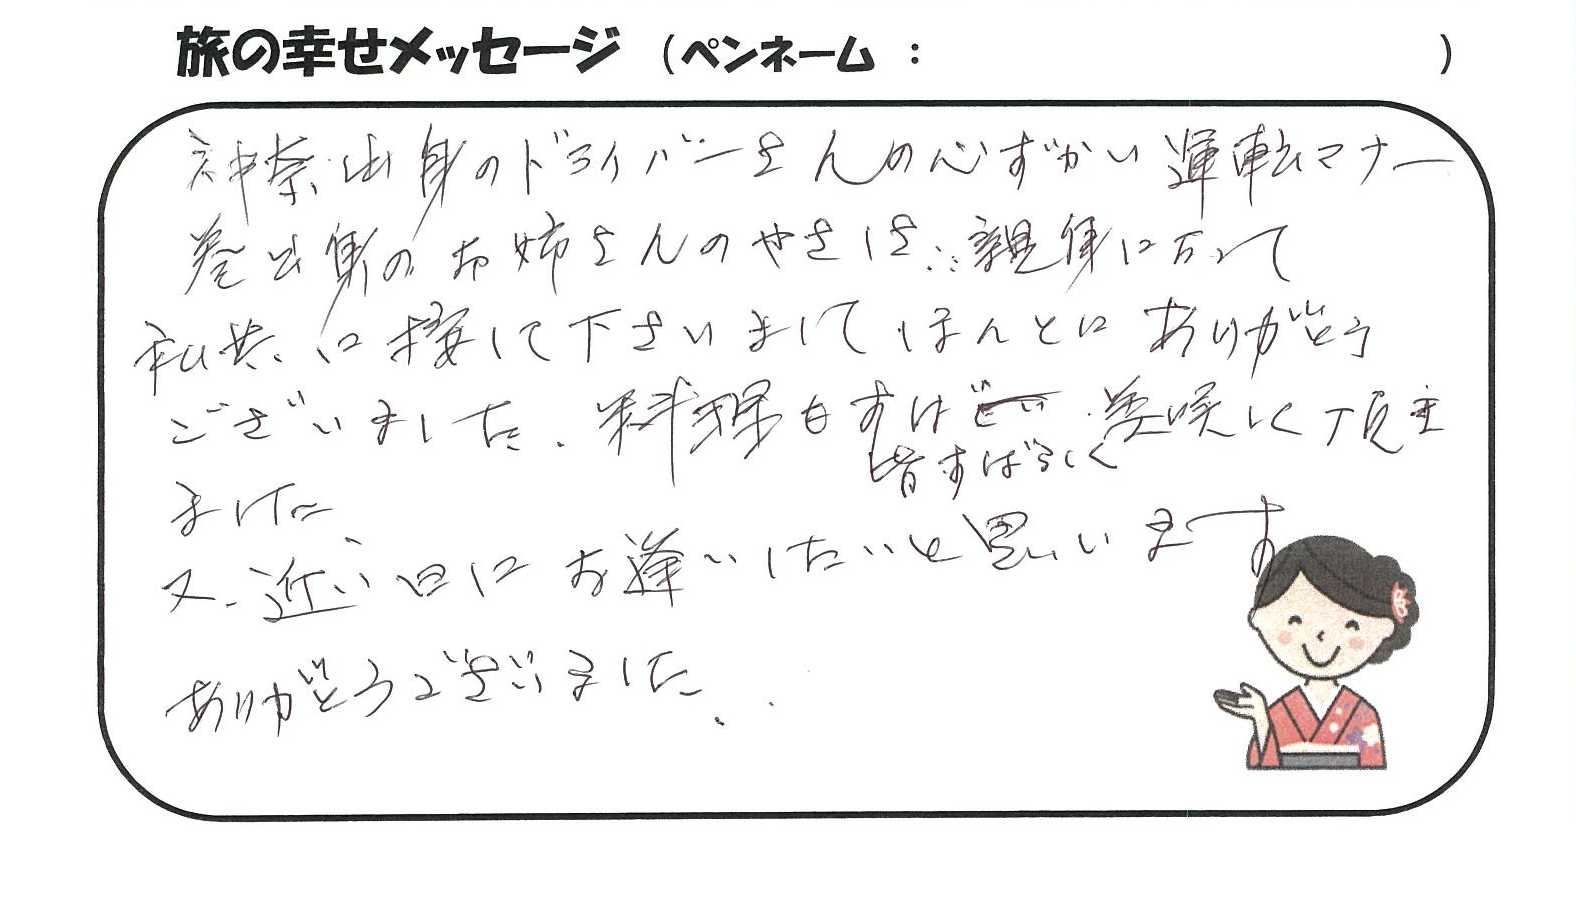 旅の幸せメッセージ (ペンネーム : )
神奈出身のドライバーさんの心ずかい運転マナー
巻出身のお姉さんのやさしさ…親身になって
私共、に接して下さいましてほんとにありがとう
ございました。料理もすば 美味しく頂き
皆すばらしく
ました、
又、近い日にお逢いしたいと思います
ありがとうございました..